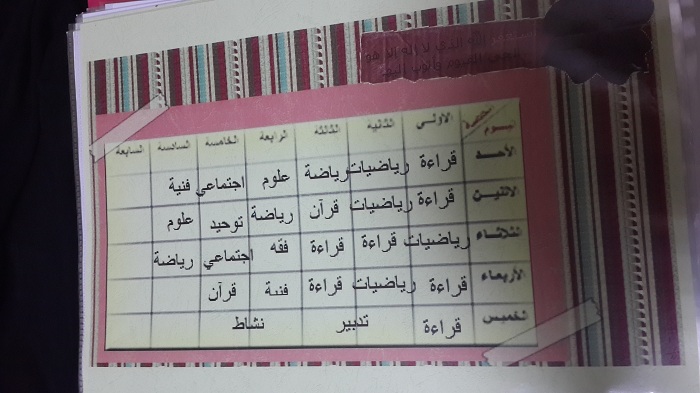 الحصة
اليوم الأولى الثانية الثالثة الرابعة الخامسة السادسة السابعة
الأحد قراءة رياضيات رياضة علوم اجتماعي فنية
الاثنين قراءة رياضيات قرآن رياضة توحيد علوم
الثلاثاء رياضيات قراءة قراءة فقه اجتماعي رياضة
الأربعاء قراءة رياضيات قراءة فنية قرآن
الخميس قراءة تدبير نشاط